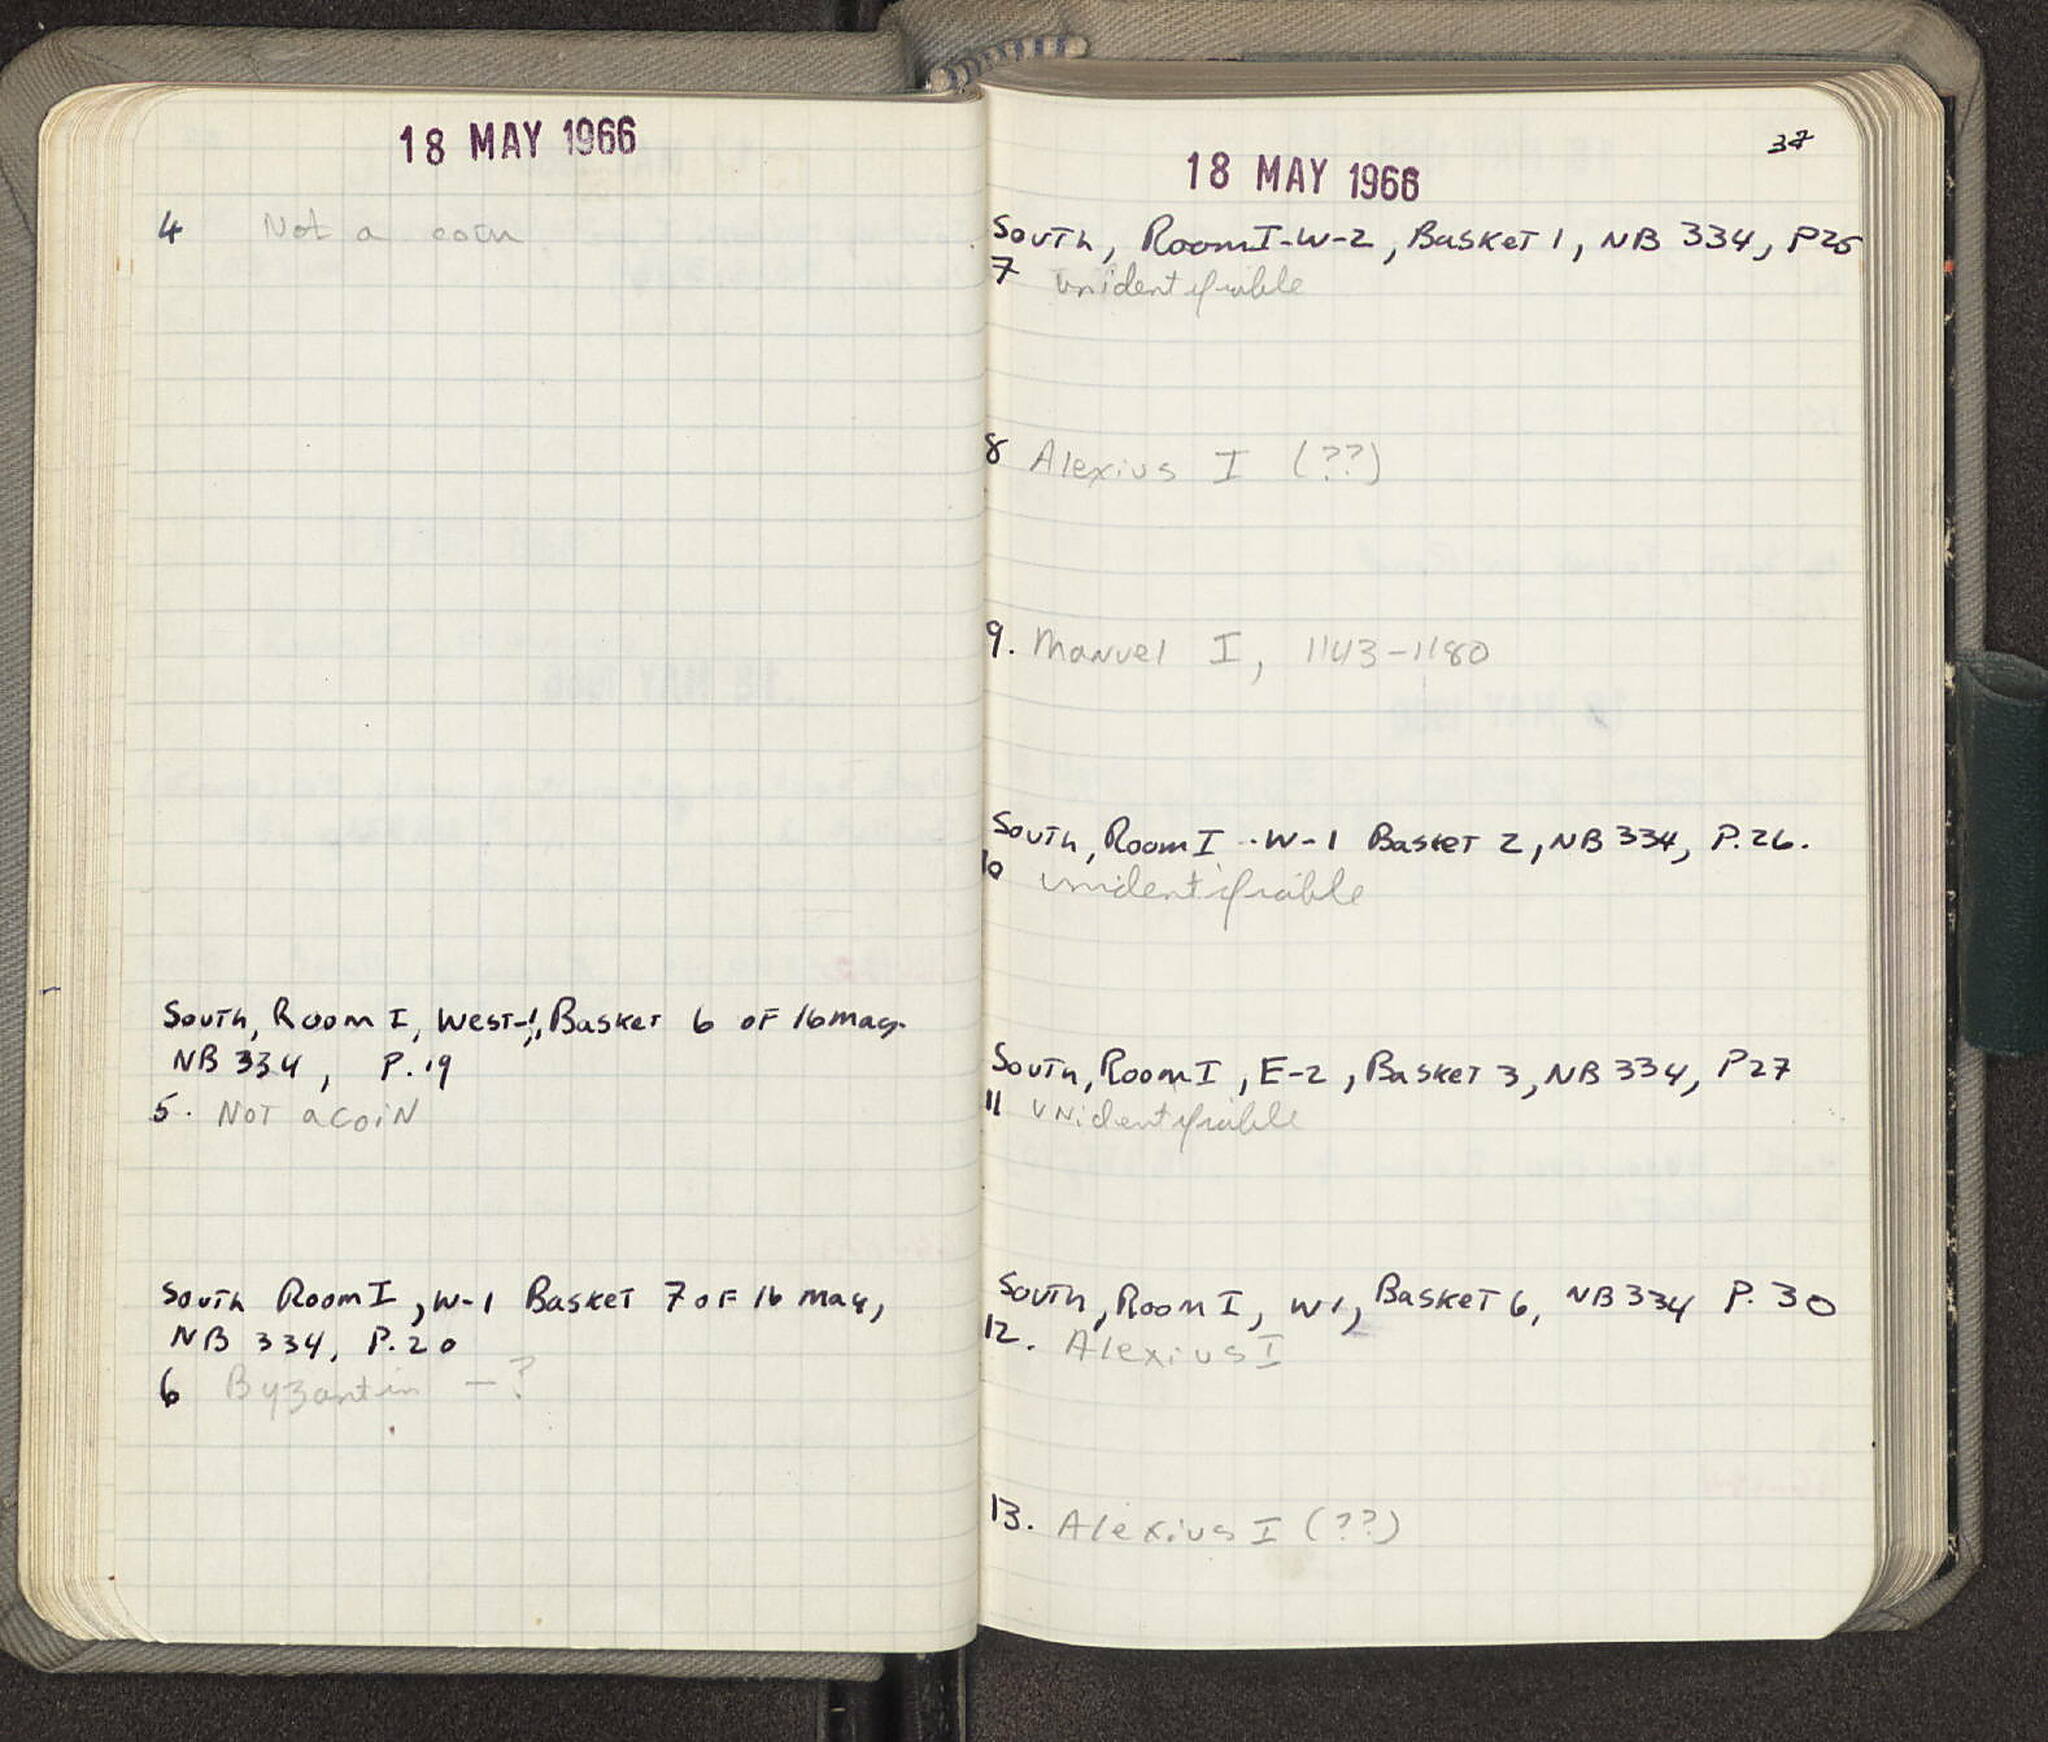 18 MAY 1966
4 Not a coin
South, Room I, West-1, Basket 6 of 16 may.
NB 334, P.19
5. Not a coin
South Room I, W-1 Basket 7 of 16 may,
NB 334, P.20
6 Byzantin - ?
18 MAY 1966
South, Room I-W-2, Basket 1, NB 334, P25
7 unidentifiable
8 Alexius I (??)
9. Manuel I, 1143-1180
South, Room I -W-1 Basket 2, NB 334, P.26.
10 unidentifiable
South, Room I, E-2, Basket 3, NB 334, P27
11 unidentifiable
South, Room I, W1, Basket 6, NB 334 P. 30
12. Alexius I
13. Alexius I (??)